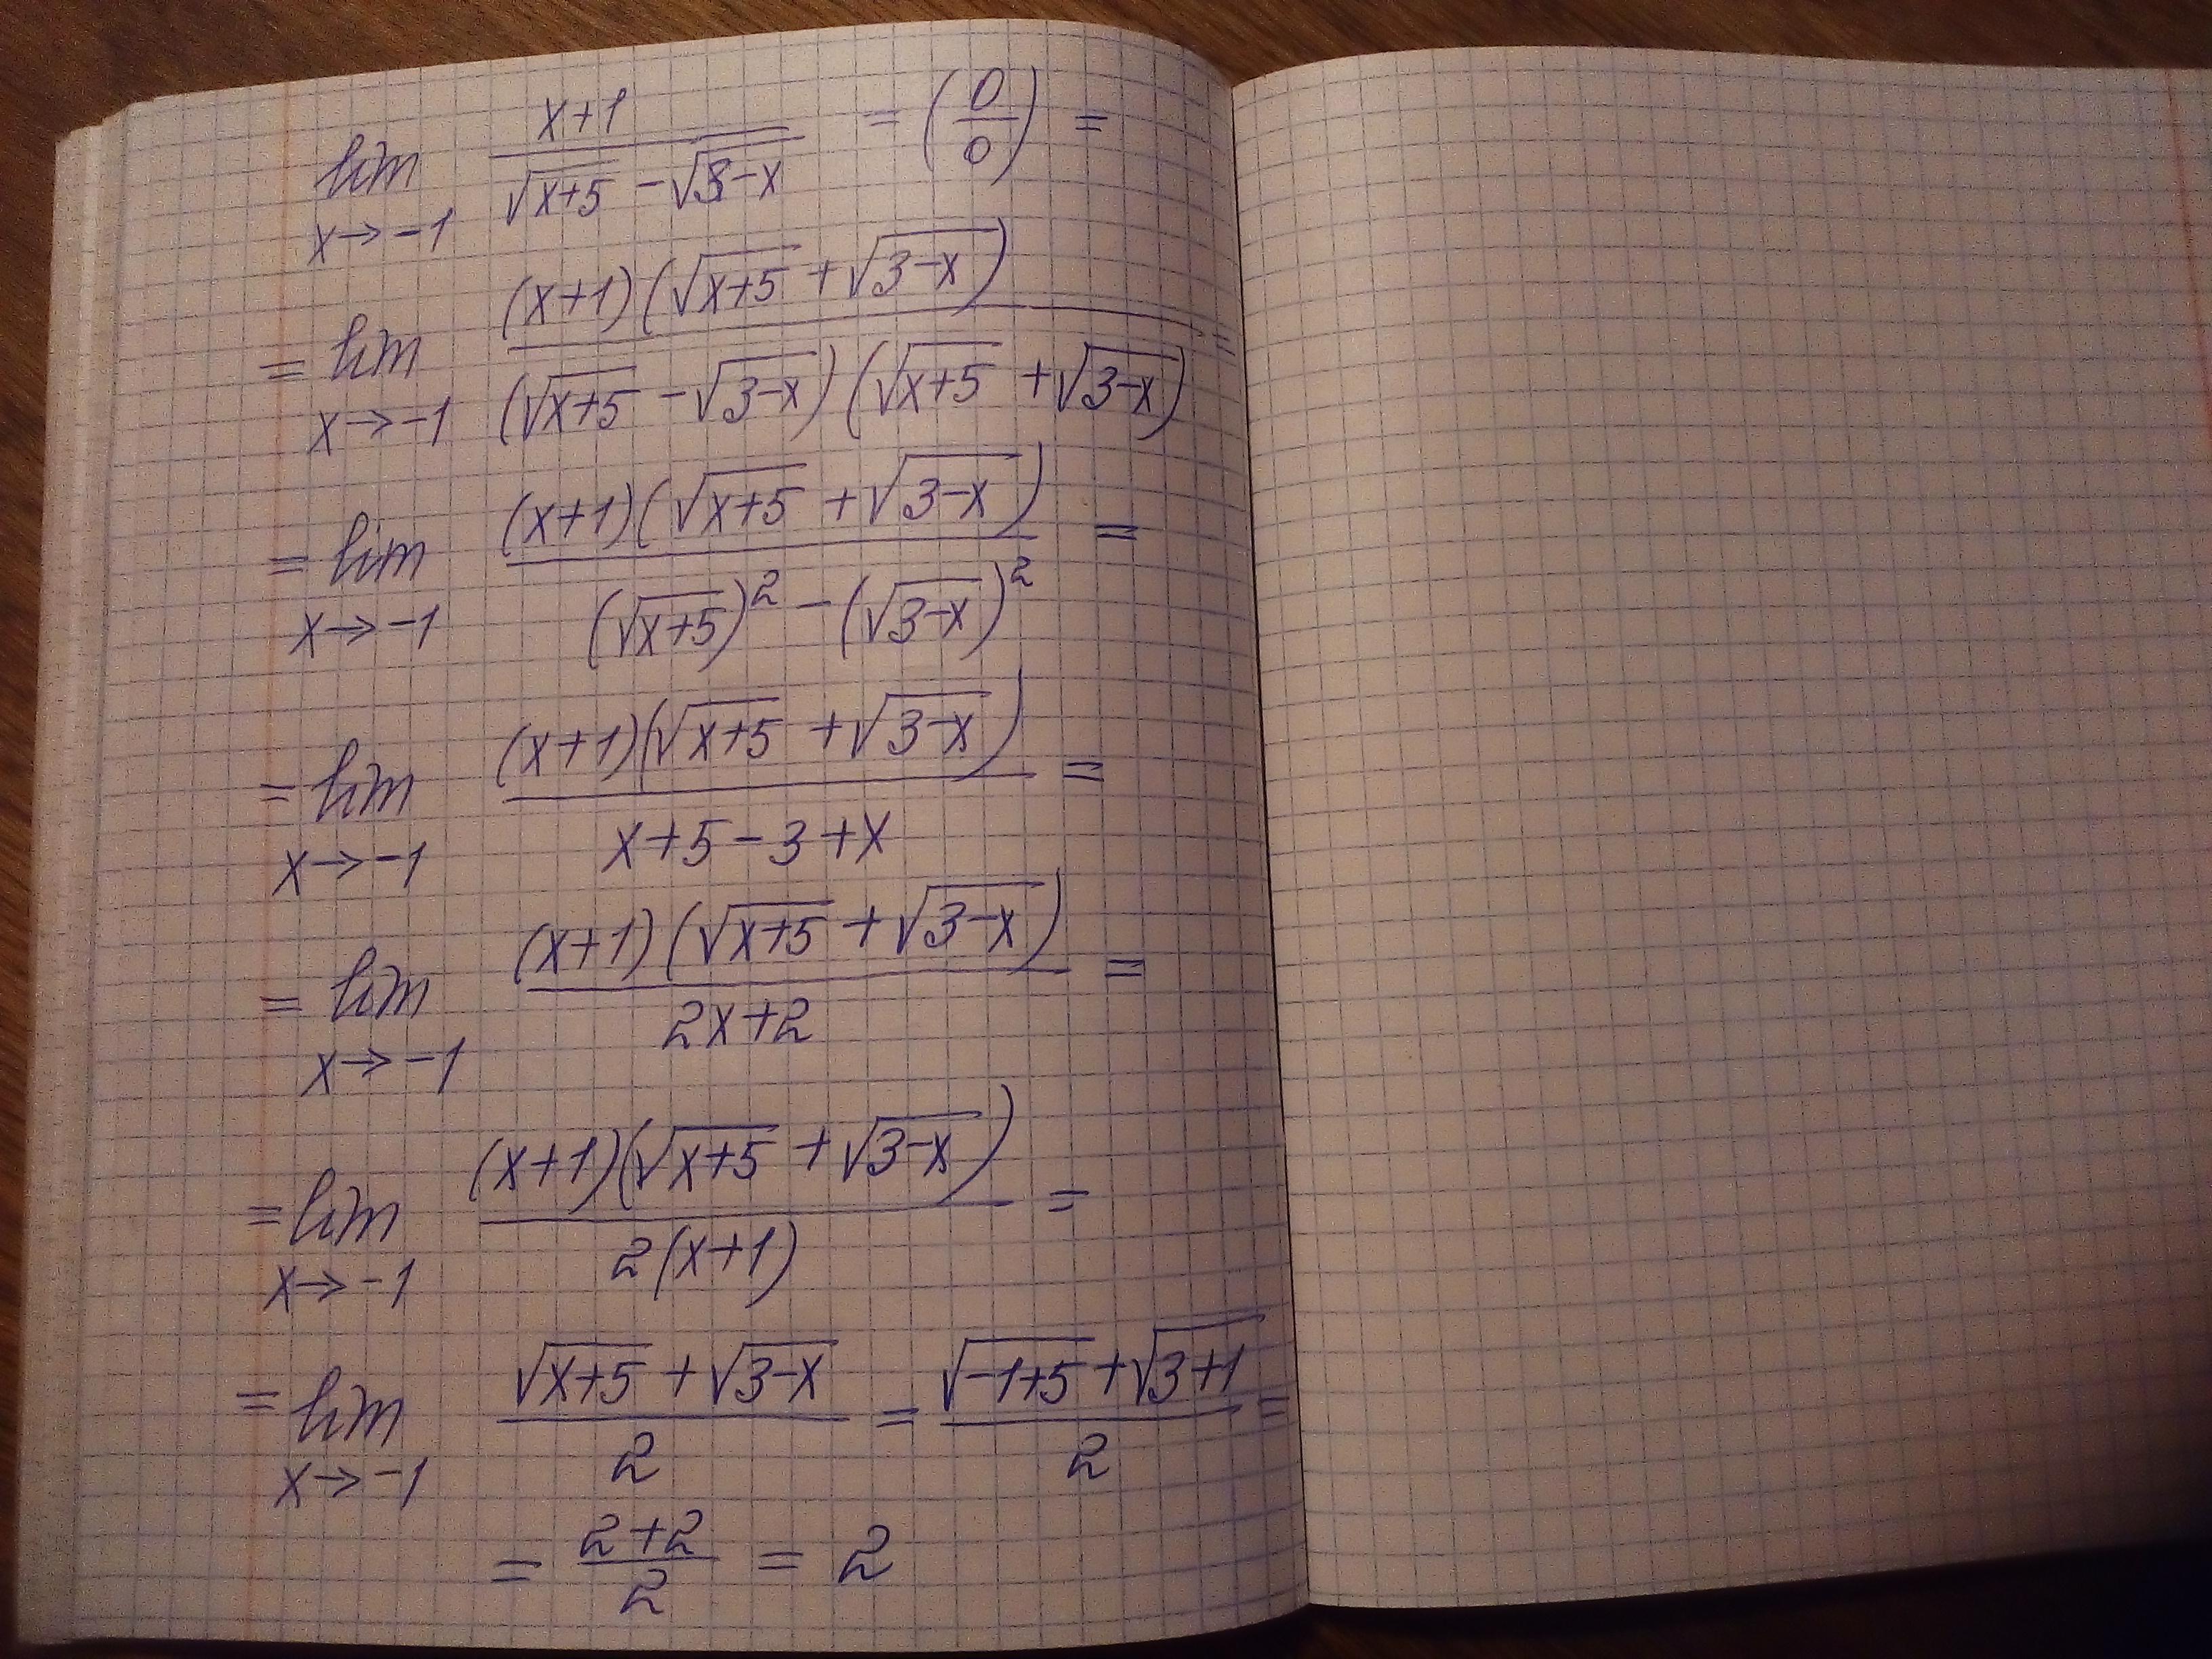 lim x→-1 (x+1)/(√(x+5) - √(3-x)) = (0/0) =
= lim x→-1 ((x+1)(√(x+5) + √(3-x)))/((√(x+5) - √(3-x))(√(x+5) + √(3-x))) =
= lim x→-1 ((x+1)(√(x+5) + √(3-x)))/((√(x+5))² - (√(3-x))²) =
= lim x→-1 ((x+1)(√(x+5) + √(3-x)))/(x+5-3+x) =
= lim x→-1 ((x+1)(√(x+5) + √(3-x)))/(2x+2) =
= lim x→-1 ((x+1)(√(x+5) + √(3-x)))/(2(x+1)) =
= lim x→-1 (√(x+5) + √(3-x))/2 = (√(-1+5) + √(3+1))/2 =
= (2+2)/2 = 2